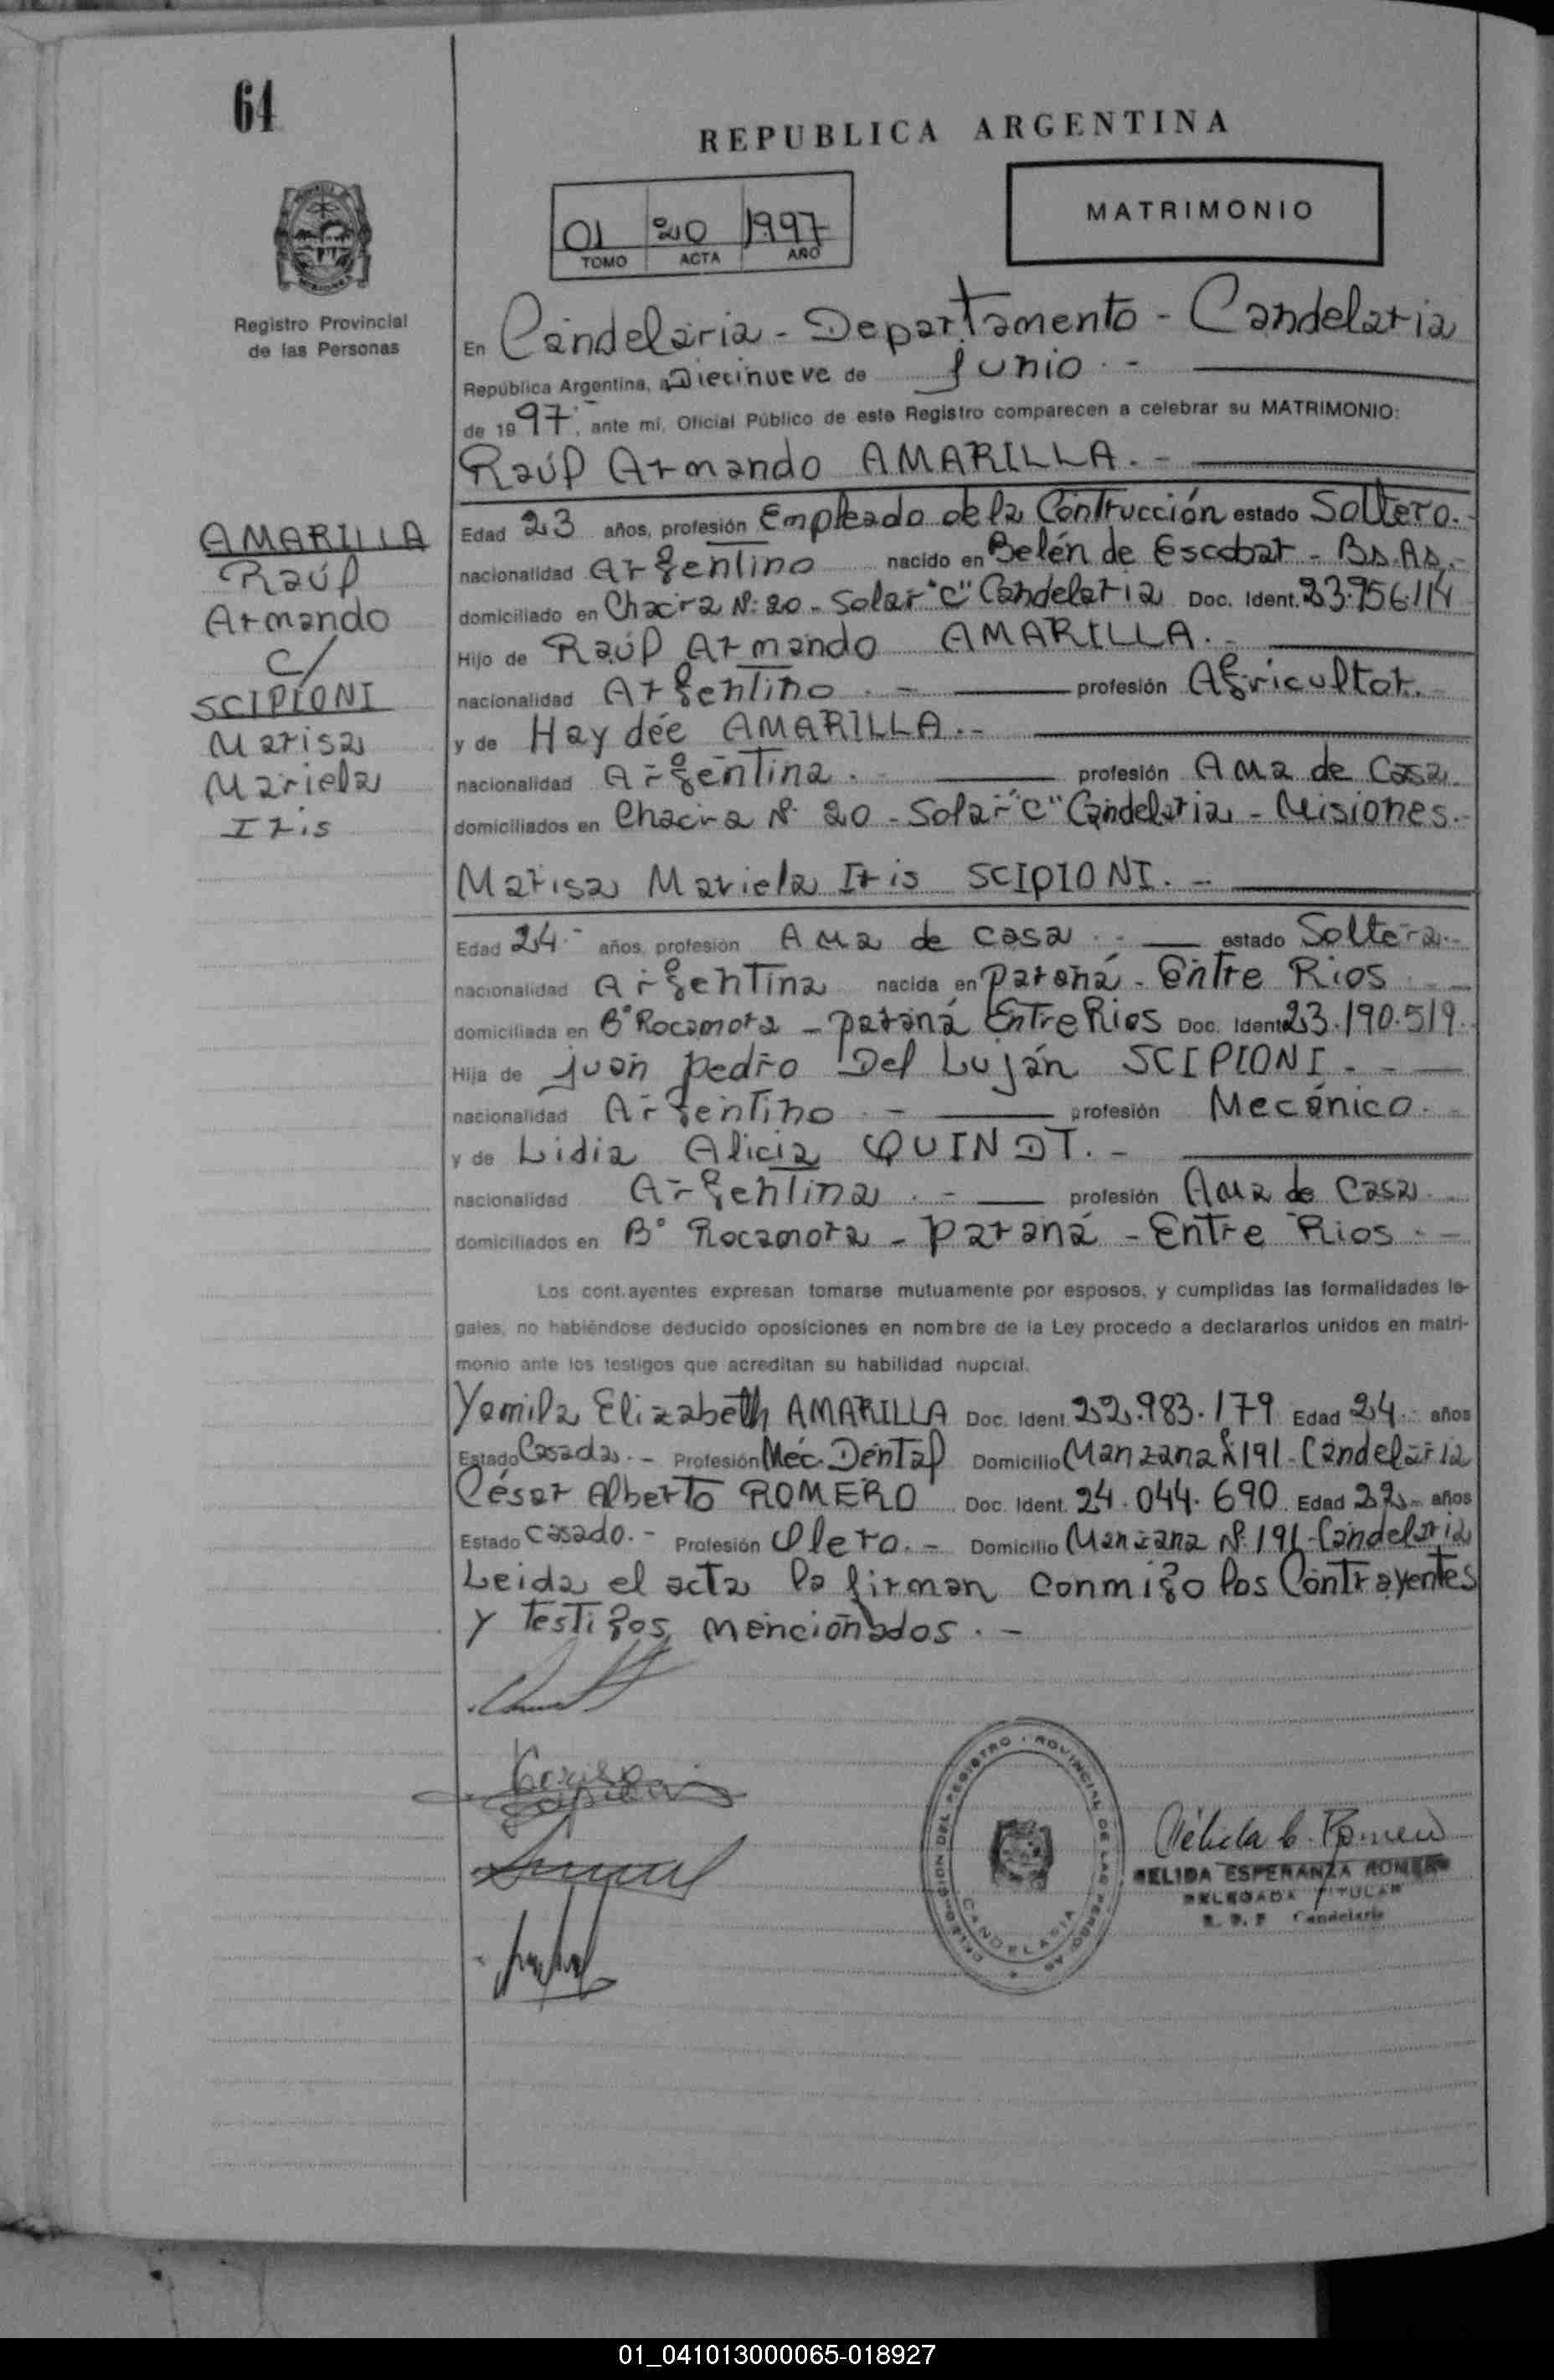 64
REPUBLICA ARGENTINA
01 20 1997
TOMO ACTA AÑO
MATRIMONIO
Registro Provincial
de las Personas
En Candelaria - Departamento - Candelaria
República Argentina, a Diecinueve de Junio . -
de 1997. ante mí, Oficial Público de este Registro comparecen a celebrar su MATRIMONIO:
Raúl Armando AMARILLA. -
AMARILLA
Raúl
Armando
c/
SCIPIONI
Marisa
Mariela
Iris
Edad 23 años, profesión Empleado de la Contrucción estado Soltero. -
nacionalidad Argentino nacido en Belén de Escobar - Bs. As. -
domiciliado en Chacra Nº: 20 - Solar "C" Candelaria Doc. Ident. 23.956.114
Hijo de Raúl Armando AMARILLA. -
nacionalidad Argentino . - profesión Agricultor. -
y de Haydée AMARILLA. -
nacionalidad Argentina . - profesión Ama de Casa
domiciliados en Chacra Nº 20 - Solar "C" Candelaria - Misiones. -
Marisa Mariela Iris SCIPIONI. -
Edad 24 - años, profesión Ama de casa . - estado Soltera. -
nacionalidad Argentina nacida en Paraná - Entre Rios
domiciliada en Bº Rocamora - Paraná Entre Rios Doc. Ident. 23.190.519
Hija de Juan Pedro Del Luján SCIPIONI. - -
nacionalidad Argentino . - profesión Mecánico. -
y de Lidia Alicia QUINDT. -
nacionalidad Argentina . - profesión Ama de Casa
domiciliados en Bº Rocamora - Paraná - Entre Rios . -
Los cont.ayentes expresan tomarse mutuamente por esposos, y cumplidas las formalidades le-
gales, no habiéndose deducido oposiciones en nombre de la Ley procedo a declararlos unidos en matri-
monio ante los testigos que acreditan su habilidad nupcial.
Yamila Elizabeth AMARILLA Doc. Ident. 22.983.179 Edad 24 años
Estado Casada. - Profesión Méc. Dental Domicilio Manzana Nº 191 - Candelaria
César Alberto ROMERO Doc. Ident. 24.044.690 Edad 22 - años
Estado casado. - Profesión Olero. - Domicilio Manzana Nº 191 - Candelaria
Leida el acta la firman conmigo los Contrayentes
y testigos mencionados . -
DELEGACION DEL REGISTRO PROVINCIAL DE LAS PERSONAS
CANDELARIA
NELIDA ESPERANZA ROMERO
DELEGADA TITULAR
R. P. P Candelaria
01_041013000065-018927